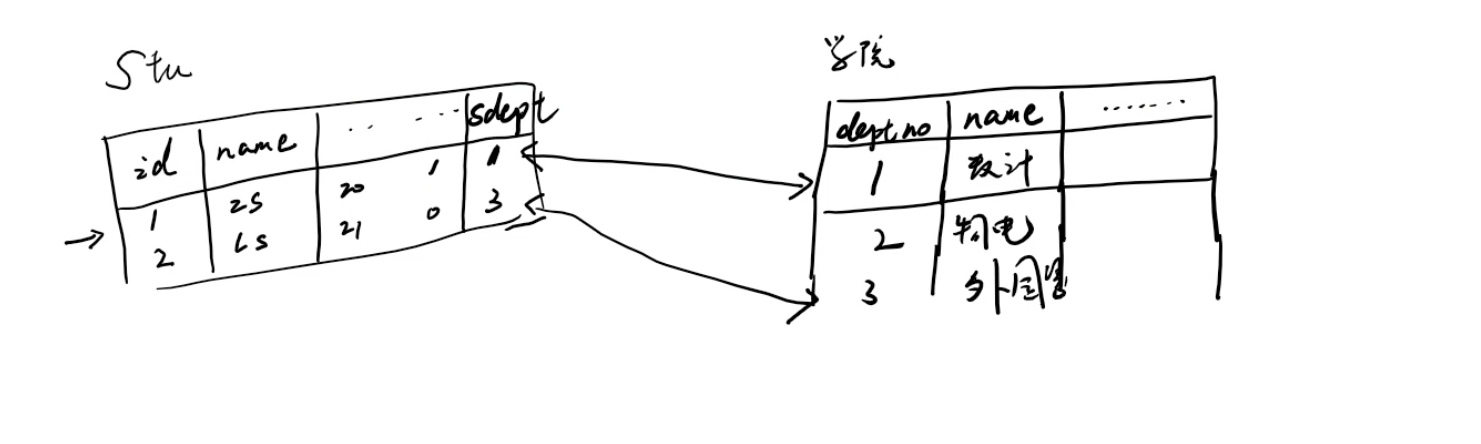 Stu
id name ...... sdept
1 zs 20 1 1
2 Ls 21 0 3
学院
dept.no name .......
1 设计
2 物电
3 外国语